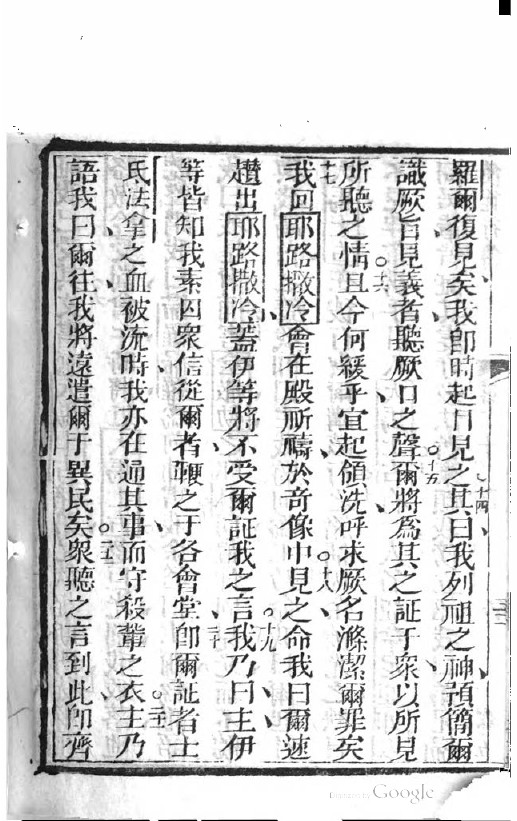 羅爾復見矣我即時起目見之其曰我列祖之神預簡爾
識厥旨見義者聽厥口之聲爾將為其之証于衆以所見
所聽之情且今何緩乎宜起領洗呼求厥名滌潔爾罪矣
我回耶路撒冷會在殿祈禱於奇像中見之命我曰爾速
趲出耶路撒冷蓋伊等將不受爾証我之言我乃曰主伊
等皆知我素囚衆信從爾者鞭之于各會堂即爾証者士
氏法拿之血被流時我亦在通其事而守殺輩之衣主乃
語我曰爾往我將遠遣爾于異民矣衆聽之言到此即齊
十四
十五
十六
十七
十八
十九
二十
Google